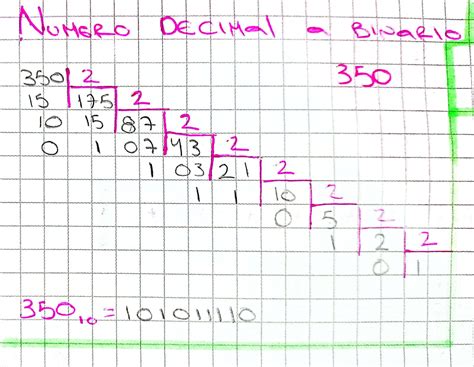 NUMERO DECIMAL a BINARIO
350
350 2
15 175 2
10 15 87 2
0 1 07 43 2
1 03 21 2
1 1 10 2
0 5 2
1 2 2
0 1
350₁₀ = 101011110